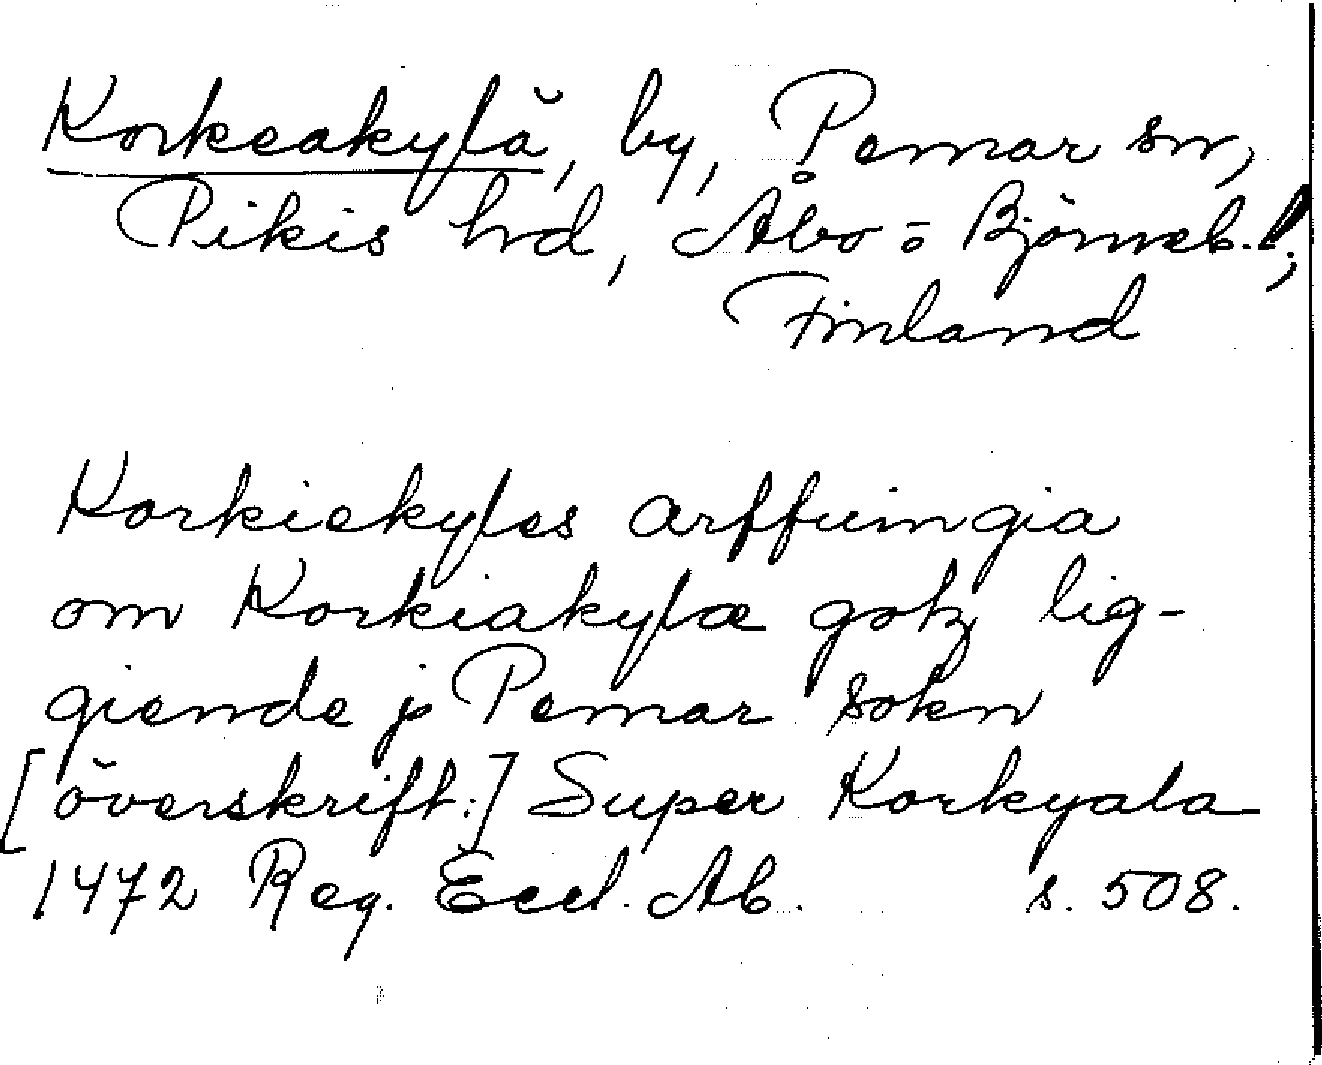 Korkeakylä, by, Pemar sn,
Pikis hrd, Åbo = Björneb. l;
Finland
Korkiekyles arffuingia
om Korkiakylæ gotz lig-
giende j Pemar sokn
[överskrift:] Super Korkyala
1472 Reg. Eccl. Ab. s. 508.